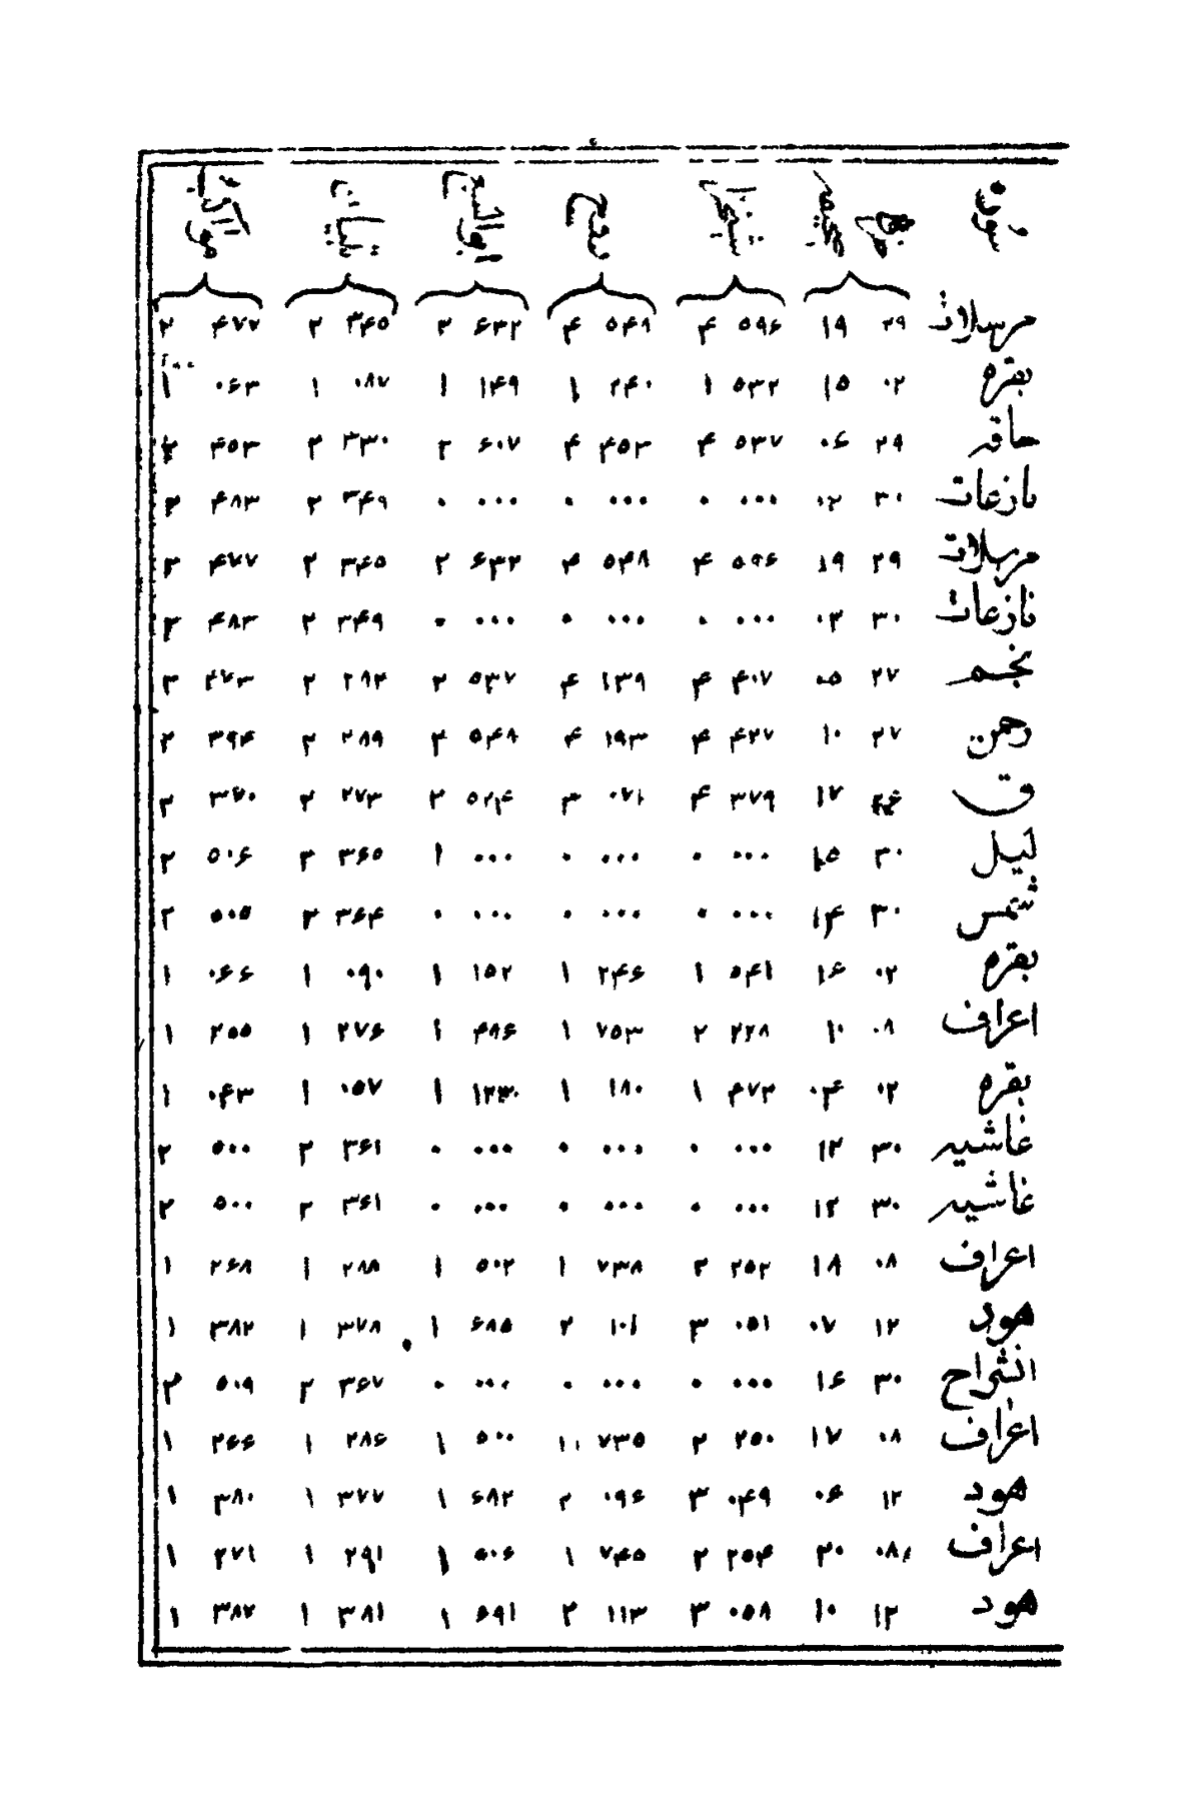 سورة
مرسلات ۲۹ ۱۹ ۵۹۶ ۴ ۵۴۸ ۴ ۶۳۲ ۲ ۳۴۵ ۲ ۴۷۷ ۲
بقره ۰۲ ۱۵ ۵۳۲ ۱ ۲۴۰ ۱ ۱۴۹ ۱ ۰۸۷ ۱ ۰۶۳ ۱
حاقه ۲۹ ۰۶ ۵۳۷ ۴ ۴۵۳ ۴ ۶۰۷ ۲ ۳۳۰ ۲ ۴۵۳ ۲
نازعات ۳۰ ۰۲ ۰۰۰ ۰ ۰۰۰ ۰ ۰۰۰ ۰ ۳۴۹ ۲ ۴۸۳ ۲
مرسلات ۲۹ ۱۹ ۵۹۶ ۴ ۵۴۸ ۴ ۶۳۲ ۲ ۳۴۵ ۲ ۴۷۷ ۲
نازعات ۳۰ ۰۲ ۰۰۰ ۰ ۰۰۰ ۰ ۰۰۰ ۰ ۳۴۹ ۲ ۴۸۳ ۲
نجم ۲۷ ۰۵ ۴۰۷ ۴ ۱۳۹ ۴ ۵۳۷ ۲ ۲۸۲ ۲ ۲
رحمن ۲۷ ۱۰ ۴۲۷ ۴ ۱۹۳ ۴ ۵۴۸ ۲ ۲۸۹ ۲ ۳۹۴ ۲
ق ۱۷ ۳۷۹ ۴ ۰۷۱ ۵۲۴ ۲ ۲۷۳ ۲ ۳۷۰ ۲
لیل ۳۰ ۱۵ ۰۰۰ ۰ ۰۰۰ ۰ ۰۰۰ ۱ ۳۶۵ ۲ ۵۰۶ ۲
شمس ۳۰ ۱۴ ۰۰۰ ۰ ۰۰۰ ۰ ۰۰۰ ۰ ۳۶۴ ۲ ۵۰۵ ۲
بقره ۰۲ ۱۶ ۵۴۱ ۱ ۲۴۶ ۱ ۱۵۲ ۱ ۰۹۰ ۱ ۰۶۶ ۱
اعراف ۰۸ ۱۰ ۲۲۸ ۲ ۷۵۳ ۱ ۴۸۶ ۱ ۲۷۶ ۱ ۲۵۵ ۱
بقره ۰۲ ۰۴ ۴۷۲ ۱ ۱۸۰ ۱ ۱ ۰۵۷ ۱ ۰۴۳ ۱
غاشیه ۳۰ ۱۲ ۰۰۰ ۰ ۰۰۰ ۰ ۰۰۰ ۰ ۳۶۱ ۲ ۵۰۰ ۲
غاشیه ۳۰ ۱۲ ۰۰۰ ۰ ۰۰۰ ۰ ۰۰۰ ۰ ۳۶۱ ۲ ۵۰۰ ۲
اعراف ۰۸ ۱۸ ۲۵۲ ۲ ۷۳۸ ۱ ۵۰۲ ۱ ۲۸۸ ۱ ۲۶۸ ۱
هود ۱۲ ۰۷ ۰۵۱ ۳ ۱۰۱ ۲ ۶۸۵ ۱ ۳۷۸ ۱ ۳۸۲ ۱
انشراح ۳۰ ۱۶ ۰۰۰ ۰ ۰۰۰ ۰ ۰۰۰ ۰ ۳۶۷ ۲ ۵۰۹ ۲
اعراف ۰۸ ۱۷ ۲۵۰ ۲ ۷۳۵ ۱ ۵۰۰ ۱ ۲۸۶ ۱ ۲۶۶ ۱
هود ۱۲ ۰۶ ۰۴۹ ۳ ۰۹۶ ۲ ۶۸۲ ۱ ۳۷۷ ۱ ۳۸۰ ۱
اعراف ۰۸ ۲۰ ۲۵۴ ۲ ۷۴۵ ۱ ۵۰۶ ۱ ۲۹۱ ۱ ۲۷۱ ۱
هود ۱۲ ۱۰ ۰۵۸ ۳ ۱۱۳ ۲ ۶۹۱ ۱ ۳۸۱ ۱ ۳۸۷ ۱